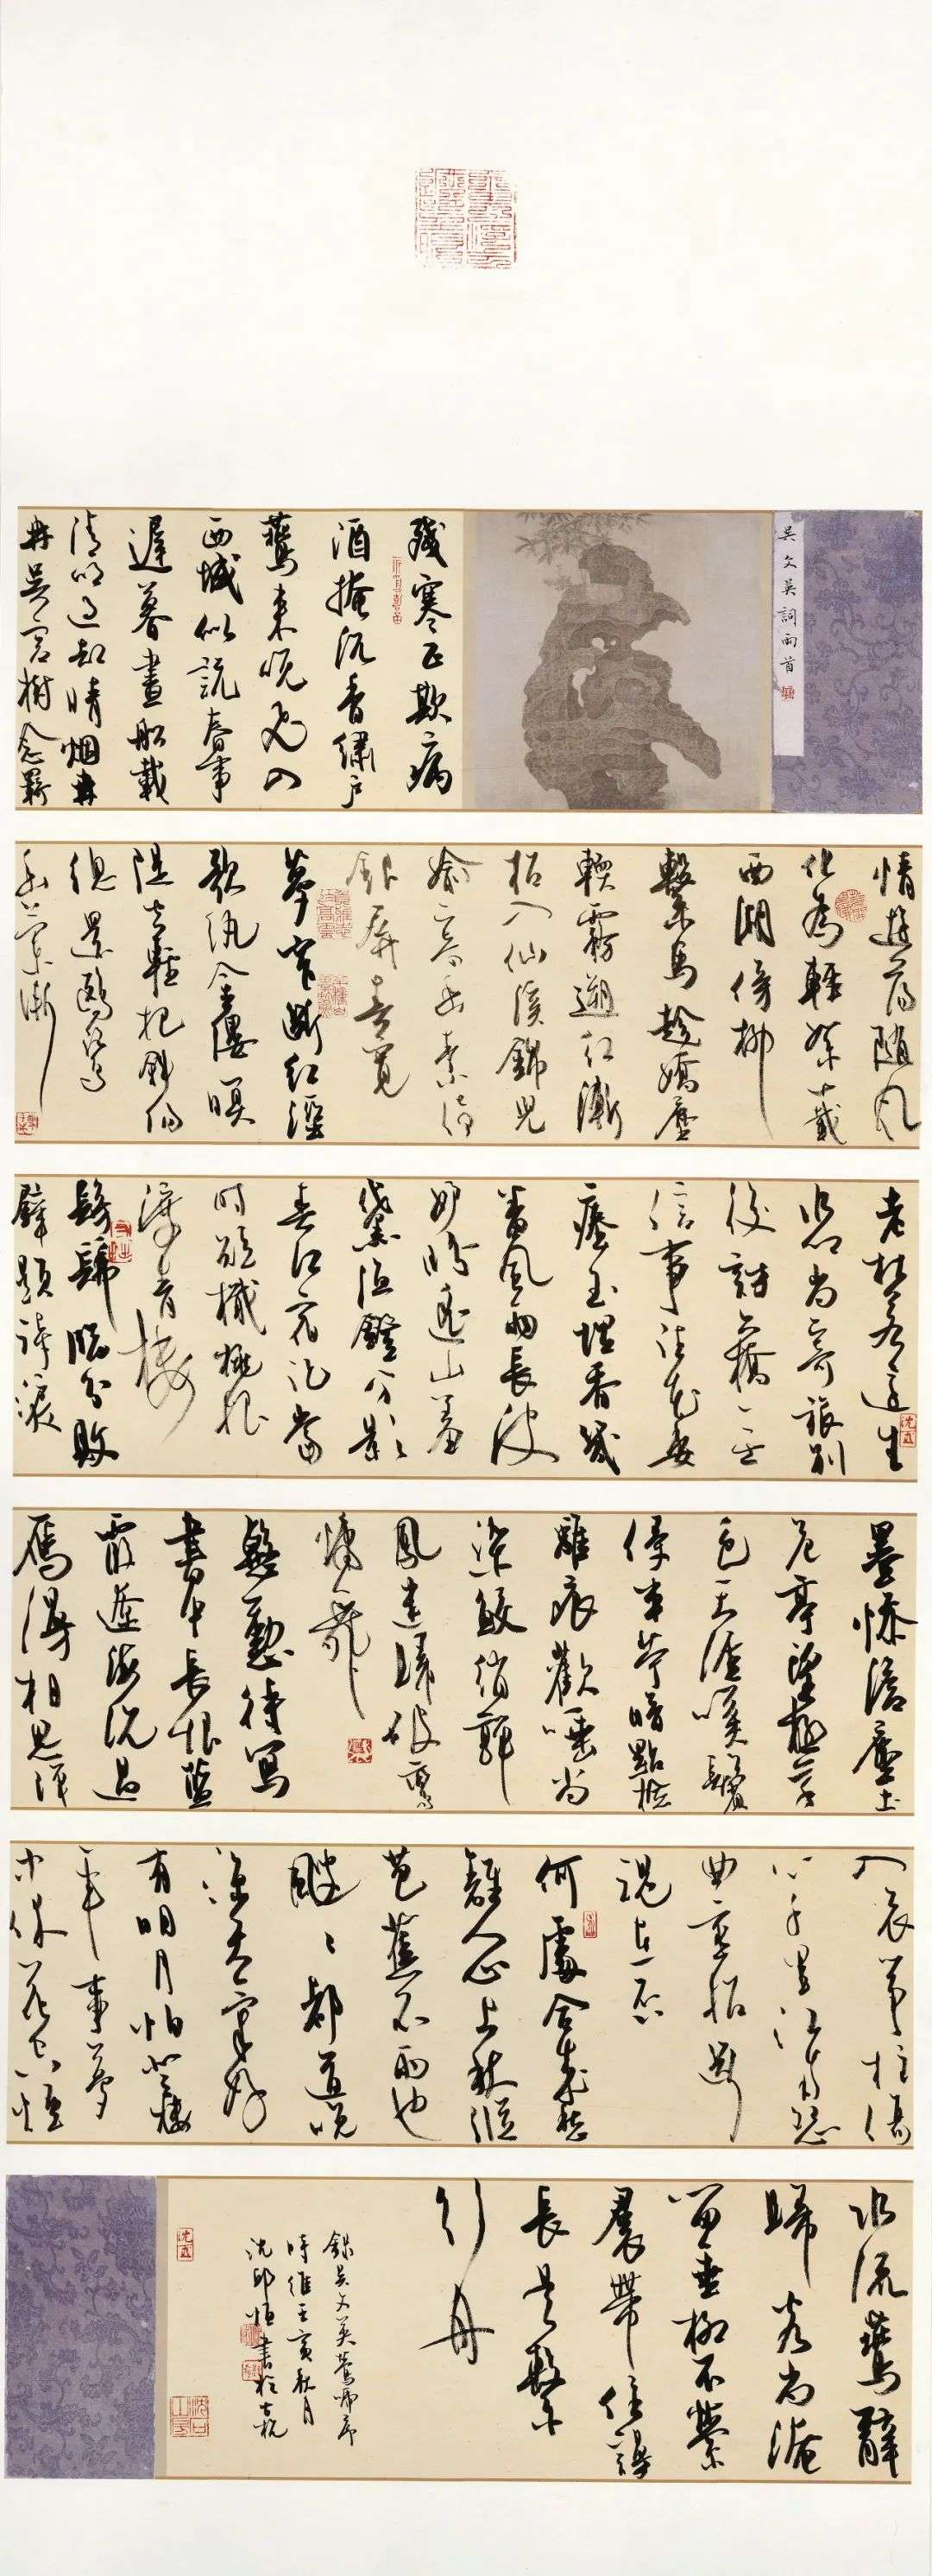 吳文英詞兩首
殘寒正欺病
酒掩沉香繡戶
燕來晚飛入
西城似說春事
遲暮畫船載
清明過卻晴烟冉
冉吳宮樹念羈
情遊蕩隨風
化為輕絮十載
西湖傍柳
繫馬趁嬌塵
軟霧遡紅漸
招入仙溪錦兒
偷寄幽素倚
銀屏春寬
夢窄斷紅溼
歌紈金縷暝
隄空輕把斜陽
總還鷗鷺
幽蘭漸
老杜若還生
水鄉尚寄旅別
後訪六橋無
信事往花委
瘞玉埋香幾
番風雨長波
妒盼遙山羞
黛漁鐙分影
春江宿記當
時短楫桃根
渡青樓
髣髴臨分敗
壁題詩淚
墨慘澹塵土
危亭望極草
色天涯嘆鬢
侵半苧暗點檢
離痕歡唾尚
染鮫綃嚲
鳳迷歸破鸞
慵舞
殷勤待寫
書中長恨藍
霞遼海沉過
雁漫相思彈
入哀箏柱傷
心千里江南怨
曲重招斷
魂在否
何處合成愁
離人心上秋縱
芭蕉不雨也
颼颼都道晚
涼天氣好
有明月怕登樓
年事夢
中休花空烟
水流燕辭
歸客尚淹
留垂柳不縈
裙帶住謾
長是繫
行舟
錄吳文英鶯啼序
時維壬寅秋月
沈邱恒書於古杭